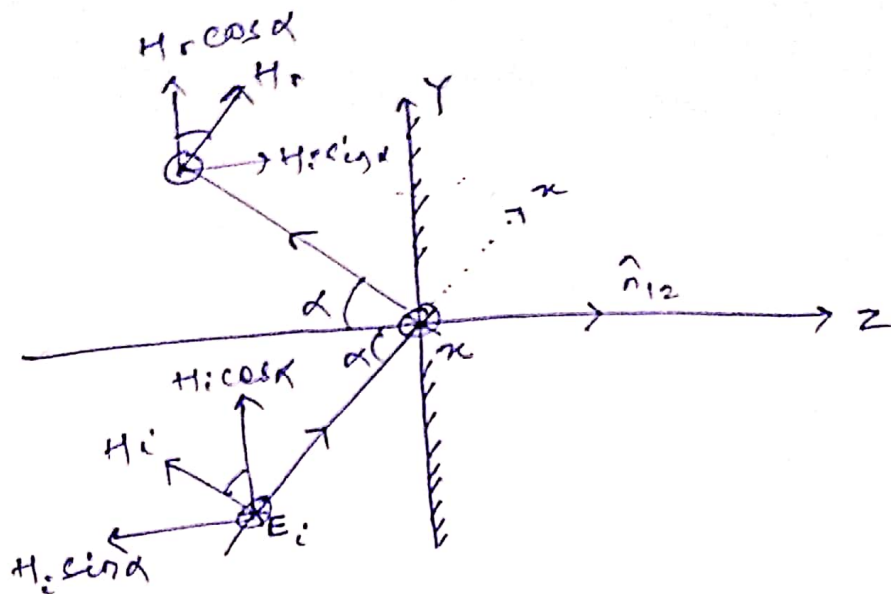 Hr cosα
Hr
Y
Hi sinα
x
n̂12
α
Z
α
x
Hi cosα
Hi
Ei
Hi sinα